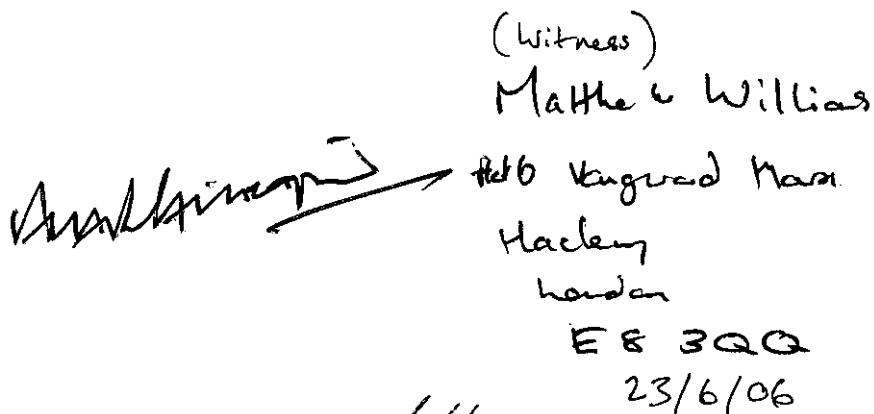 (Witness)
Matthew Williams
Flat 6 Vanguard House
Hackney
London
E8 3QQ
23/6/06